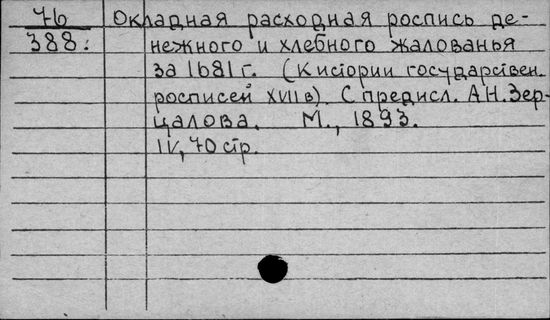 76 Окладная расходная роспись де-
388. нежного и хлебного жалованья
за 1681 г. (К истории государствен.
росписей XVII в). С предисл. А.Н. Зер-
цалова. М., 1893.
IV, 70 стр.